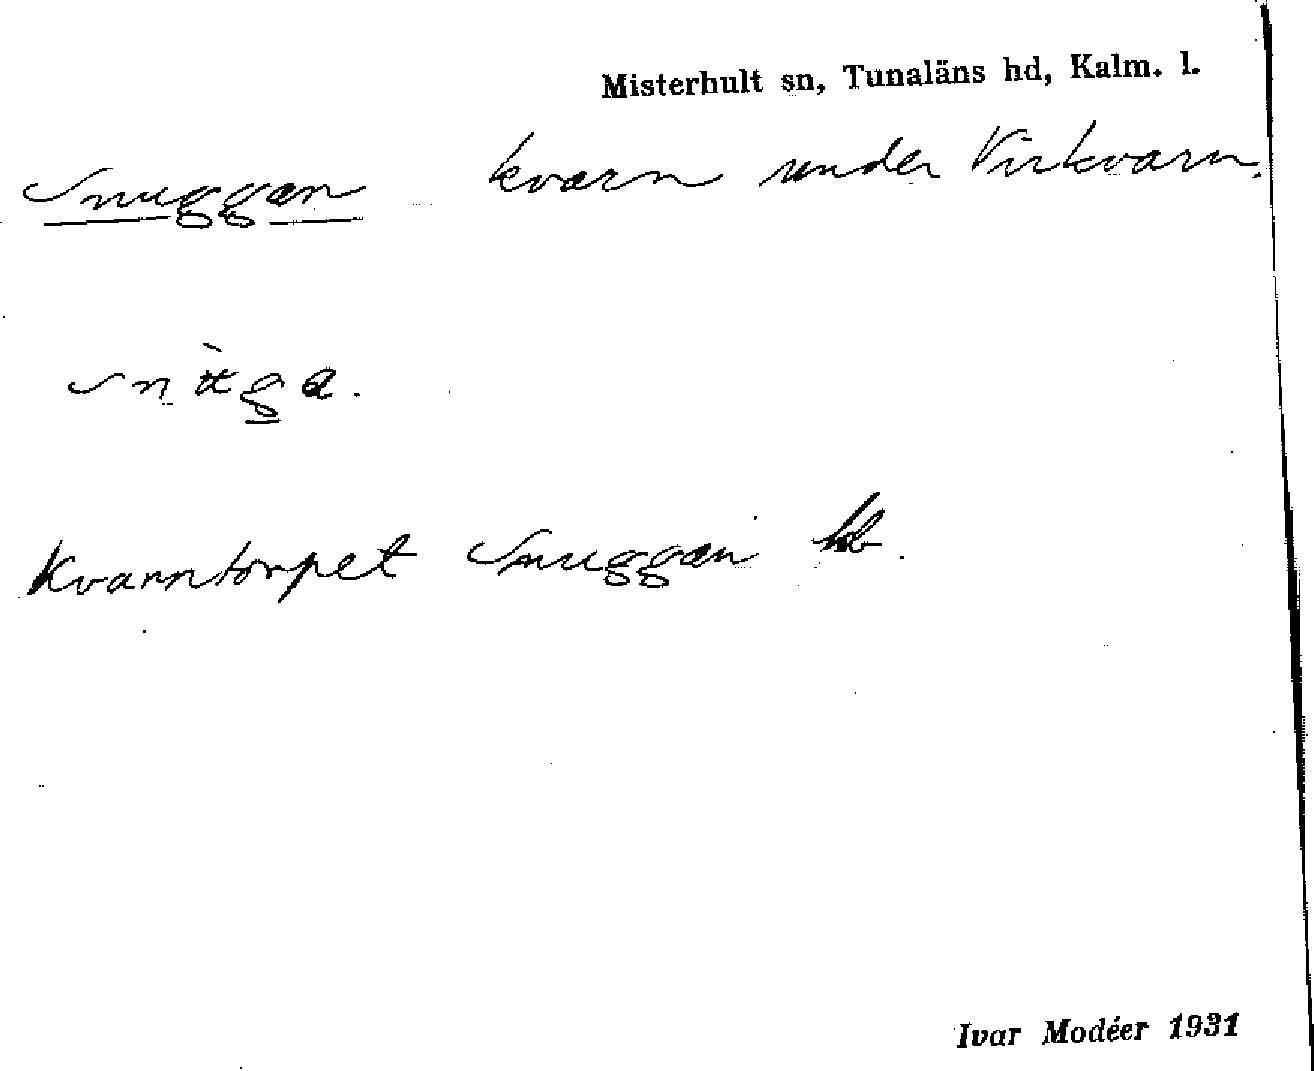 Misterhult sn, Tunaläns hd, Kalm. l.
Snuggan kvarn under Virkvarn.
Kvarntorpet Snuggan hb.
Ivar Modéer 1931